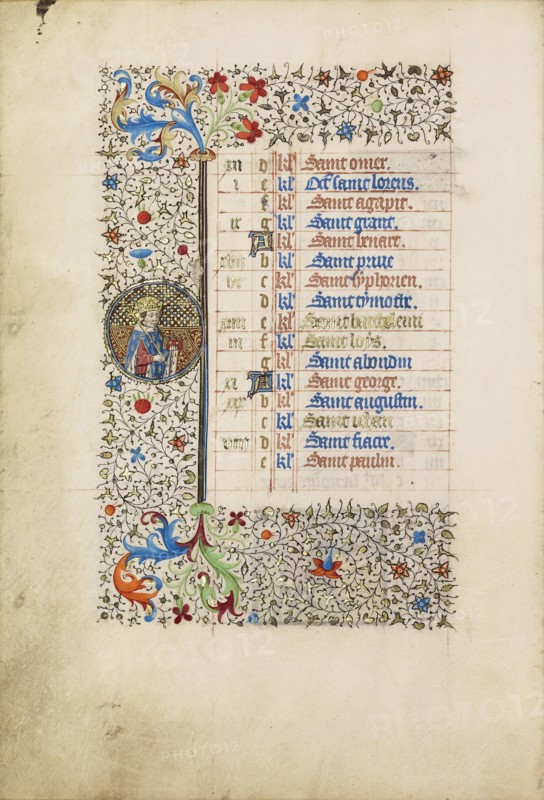 d kl' Saint omer.
i e kl' Oct saint lorens.
f kl' Saint agapit.
ix g kl' Saint grant.
A kl' Saint benart.
xvii b kl' Saint prive
vi c kl' Saint syphorien.
d kl' Saint tymothe.
xiiii e kl' Saint bartelemi
iii f kl' Saint loys.
g kl' Saint abondin
A kl' Saint george.
xix b kl' Saint augustin.
c kl' Saint iehan
viii d kl' Saint fiacre.
e kl' Saint paulin.
PHOTO12